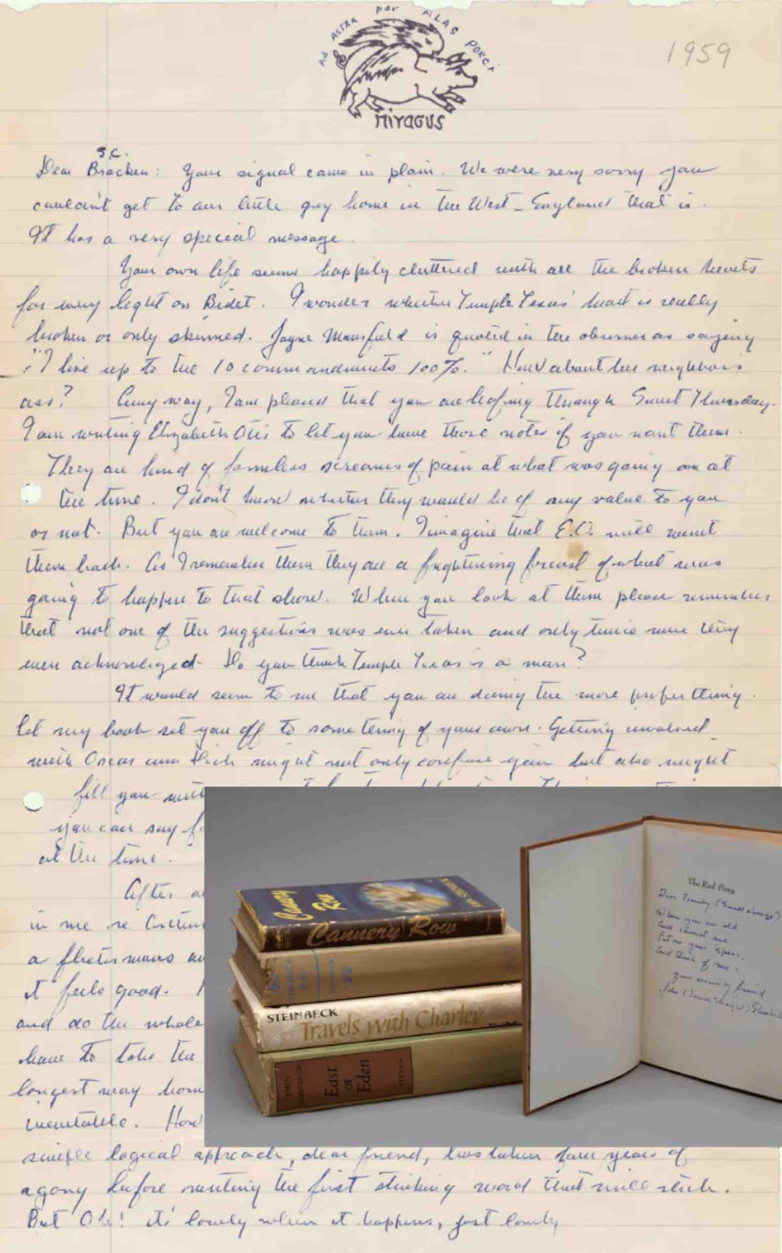 Ad ASTRA per ALAS PORCI
1959
S.C.
Dear Bracken: Your signal came in plain. We were very sorry you
couldn't get to our little grey home in the West – England that is.
It has a very special message.
Your own life seems happily cluttered with all the broken hearts
for every light on Bidet. I wonder whether Temple Texas' heart is really
broken or only skinned. Jayne Mansfield is quoted in the observer as saying
"I live up to the 10 commandments 100%." How about her neighbor's
ass? Any way, I am pleased that you are leafing through Sweet Thursday.
I am writing Elizabeth Otis to let you have those notes if you want them.
They are kind of formless screams of pain at what was going on at
the time. I don't know whether they would be of any value to you
or not. But you are welcome to them. I imagine that E.O. will want
them back. As I remember them they are a frightening forecast of what was
going to happen to that show. When you look at them please remember
that not one of the suggestions was ever taken and only twice were they
even acknowledged. Do you think Temple Texas is a man?
It would seem to me that you are doing the more proper thing.
let my book set you off to something of your own. Getting involved
with Oscar and Dick might not only confuse you but also might
fill you with
you can say
at the time.
After
in me re
a
it feels good.
and do the whole
have to take the
longest way home
inevitable. How
simple logical approach, dear friend, has taken four years of
agony before writing the first stinking word that will stick.
But Oh! it's lovely when it happens, just lovely
Cannery
Row
Cannery Row
STEINBECK
Travels with Charley
JOHN
STEINBECK
East
of
Eden
VIKING
The Red Pony
Dear
When you are old
and
Put on your specs,
and think of me.
your friend
John